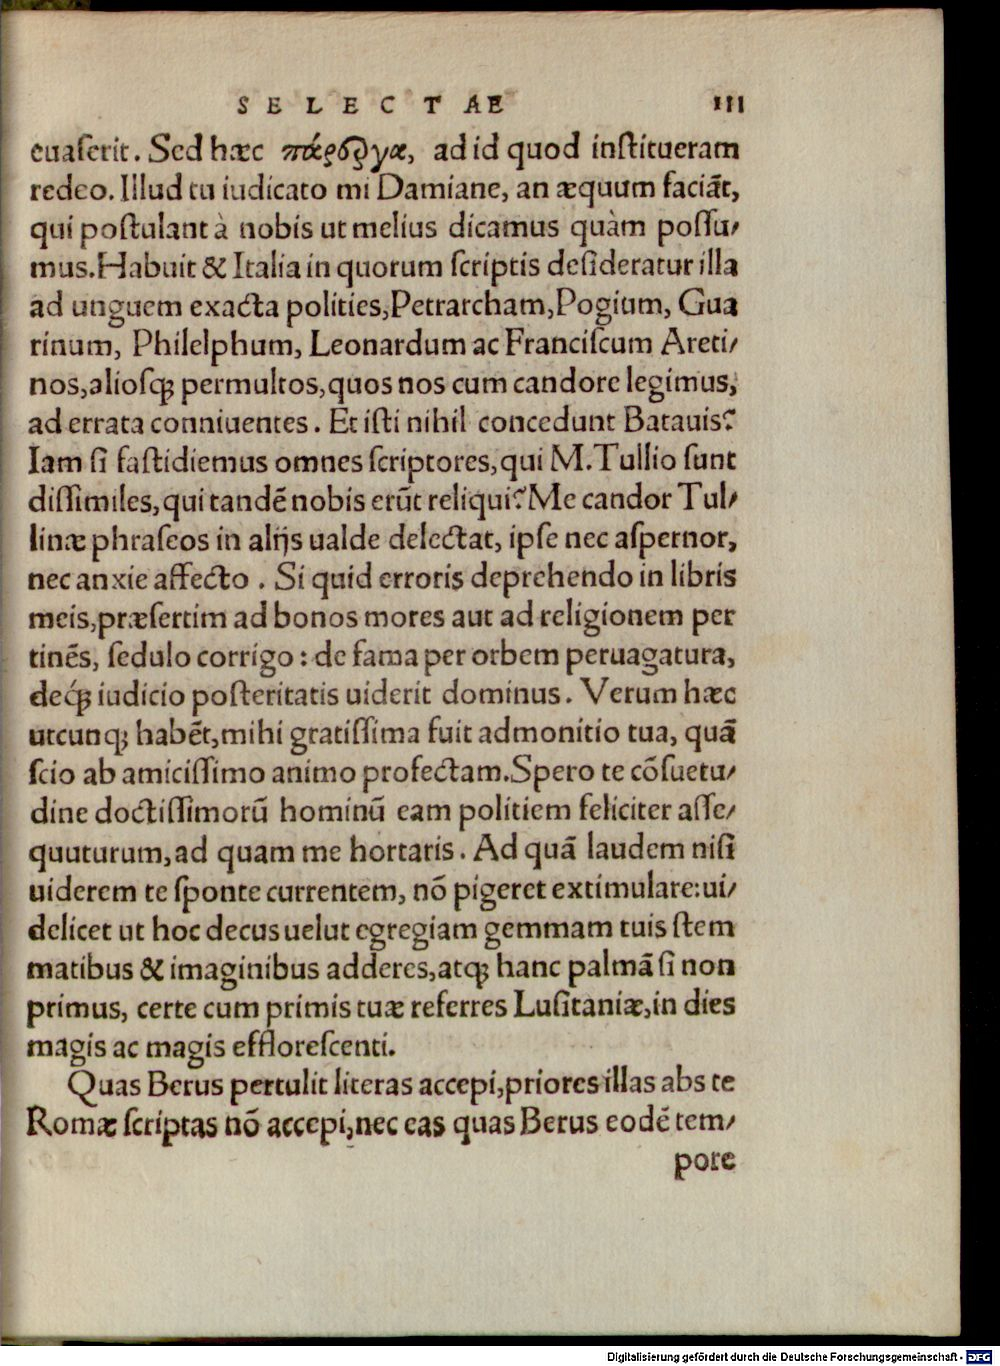 SELECTAE III
euaſerit. Sed hæc πάρεργα, ad id quod inſtitueram
redeo. Illud tu iudicato mi Damiane, an æquum faciãt,
qui poſtulant à nobis ut melius dicamus quàm poſſu/
mus. Habuit & Italia in quorum ſcriptis deſideratur illa
ad unguem exacta polities, Petrarcham, Pogium, Gua
rinum, Philelphum, Leonardum ac Franciſcum Areti/
nos, alioſq; permultos, quos nos cum candore legimus,
ad errata conniuentes. Et iſti nihil concedunt Batauis?
Iam ſi faſtidiemus omnes ſcriptores, qui M. Tullio ſunt
diſſimiles, qui tandẽ nobis erũt reliqui? Me candor Tul/
linæ phraſeos in alijs ualde delectat, ipſe nec aſpernor,
nec anxie affecto. Si quid erroris deprehendo in libris
meis, præſertim ad bonos mores aut ad religionem per
tinẽs, ſedulo corrigo: de fama per orbem peruagatura,
deq́; iudicio poſteritatis uiderit dominus. Verum hæc
utcunq; habẽt, mihi gratiſſima fuit admonitio tua, quã
ſcio ab amiciſſimo animo profectam. Spero te cõſuetu/
dine doctiſſimorũ hominũ eam politiem feliciter aſſe/
quuturum, ad quam me hortaris. Ad quã laudem niſi
uiderem te ſponte currentem, nõ pigeret extimulare: ui/
delicet ut hoc decus uelut egregiam gemmam tuis ſtem
matibus & imaginibus adderes, atq; hanc palmã ſi non
primus, certe cum primis tuæ referres Luſitaniæ, in dies
magis ac magis effloreſcenti.
Quas Berus pertulit literas accepi, priores illas abs te
Romæ ſcriptas nõ accepi, nec eas quas Berus eodẽ tem/
pore
Digitalisierung gefördert durch die Deutsche Forschungsgemeinschaft - DFG